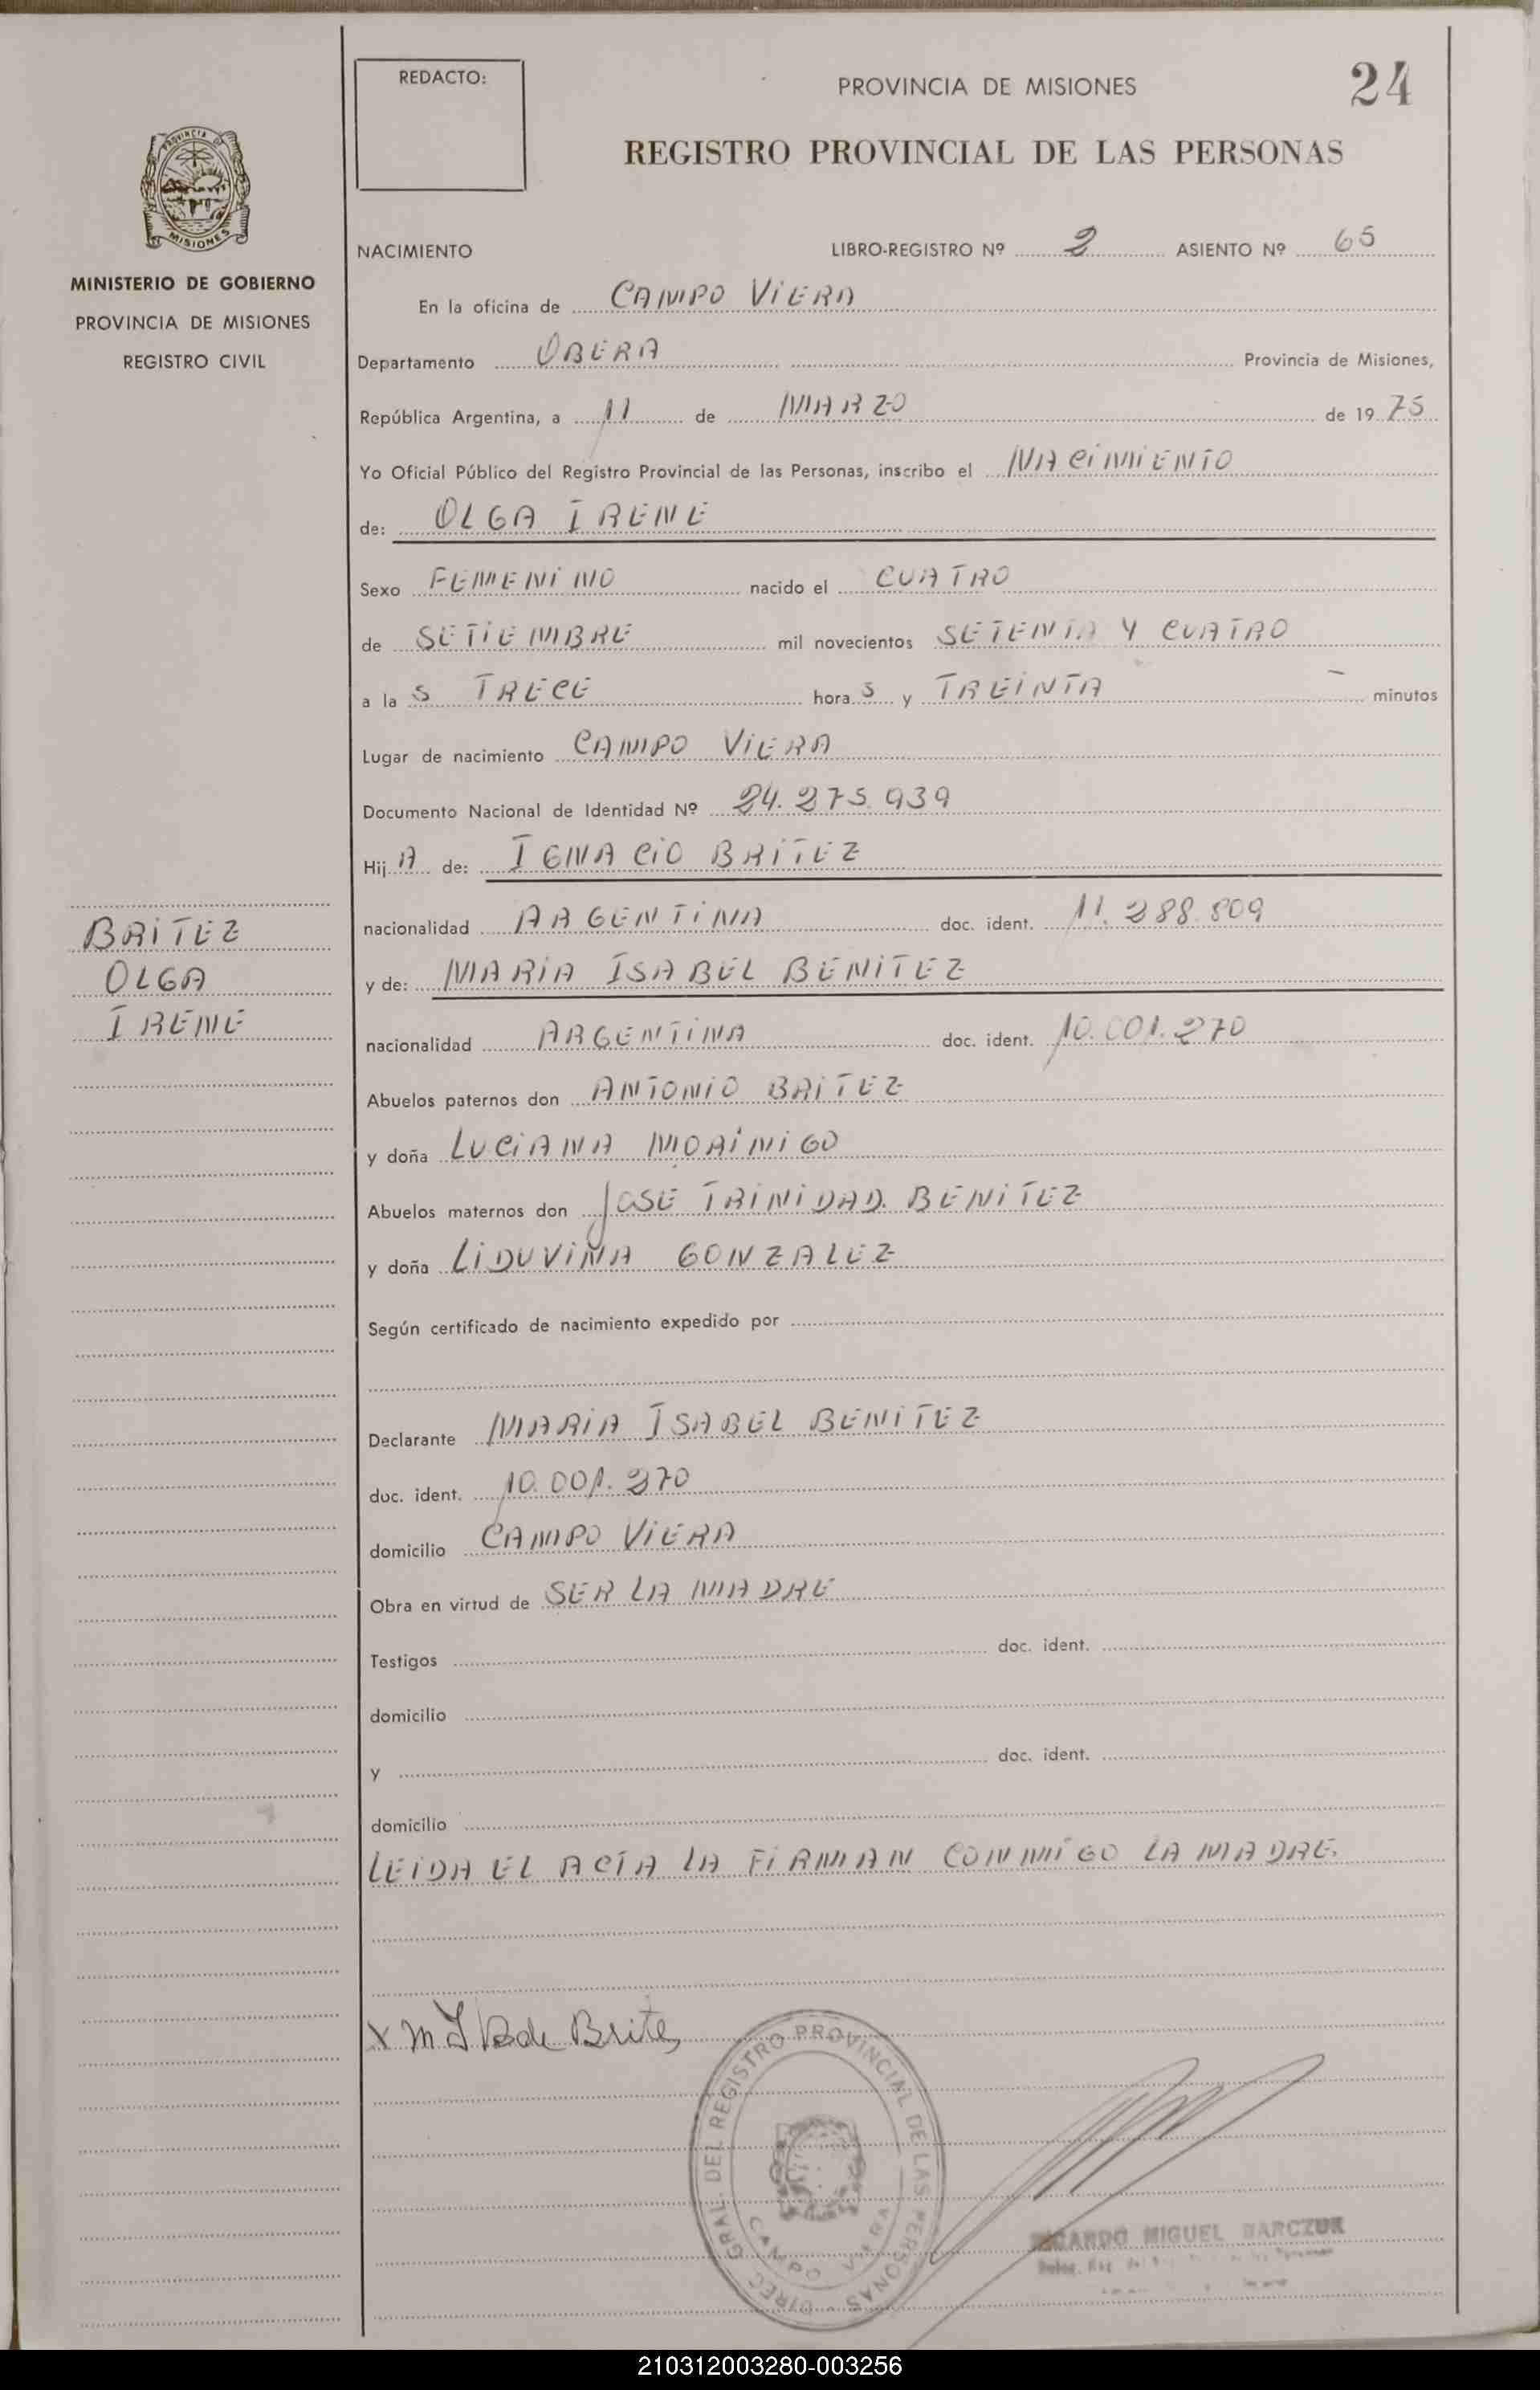 REDACTO:
PROVINCIA DE MISIONES
24
REGISTRO PROVINCIAL DE LAS PERSONAS
PROVINCIA
MISIONES
MINISTERIO DE GOBIERNO
PROVINCIA DE MISIONES
REGISTRO CIVIL
NACIMIENTO LIBRO-REGISTRO Nº 2 ASIENTO Nº 65
En la oficina de CAMPO VIERA
Departamento OBERA Provincia de Misiones,
República Argentina, a 11 de MARZO de 1975
Yo Oficial Público del Registro Provincial de las Personas, inscribo el NACIMIENTO
de: OLGA IRENE
Sexo FEMENINO nacido el CUATRO
de SETIEMBRE mil novecientos SETENTA Y CUATRO
a las TRECE horas y TREINTA minutos
Lugar de nacimiento CAMPO VIERA
Documento Nacional de Identidad Nº 24.275.939
HijA de: IGNACIO BRITEZ
nacionalidad ARGENTINA doc. ident. 11.288.809
y de: MARIA ISABEL BENITEZ
nacionalidad ARGENTINA doc. ident. 10.001.270
BRITEZ
OLGA
IRENE
Abuelos paternos don ANTONIO BRITEZ
y doña LUCIANA MORINIGO
Abuelos maternos don JOSE TRINIDAD BENITEZ
y doña LIDUVINA GONZALEZ
Según certificado de nacimiento expedido por
Declarante MARIA ISABEL BENITEZ
doc. ident. 10.001.270
domicilio CAMPO VIERA
Obra en virtud de SER LA MADRE
Testigos doc. ident.
domicilio
y doc. ident.
domicilio
LEIDA EL ACTA LA FIRMAN CONMIGO LA MADRE.
x M I B de Britez
DIREC. GRAL. DEL REGISTRO PROVINCIAL DE LAS PERSONAS
CAMPO VIERA
RICARDO MIGUEL BARCZUK
210312003280-003256